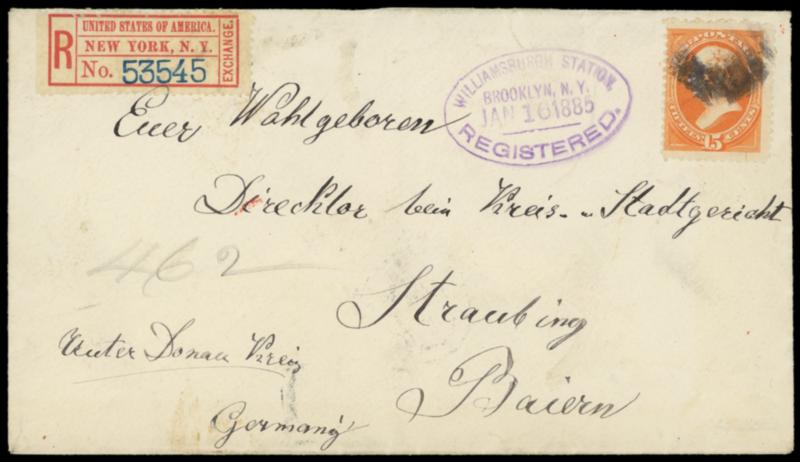 UNITED STATES OF AMERICA.
R
NEW YORK, N. Y.
No. 53545
EXCHANGE.
WILLIAMSBURGH STATION,
BROOKLYN, N.Y.
JAN 16 1885
REGISTERED.
POSTAGE
FIFTEEN 15 CENTS
Euer Wohlgeboren
Direcktor beim Kreis- u Stadtgericht
462
Straubing
Unter Donau Kreis
Baiern
Germany